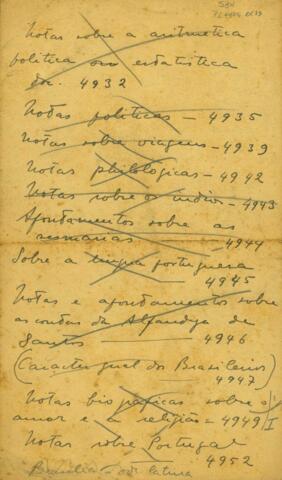 Notas sobre a aritmetica
politica ou estatistica
doc. 4932
Notas politicas - 4935
Notas sobre viagens - 4939
Notas philologicas - 4942
Notas sobre os indios - 4943
Apontamentos sobre as
sesmarias 4944
Sobre a lingua portuguesa
4945
Notas e apontamentos sobre
as contas da Alfandega de
Santos 4946
(Caracter geral dos Brasileiros)
4947
Notas biograficas sobre o
amor e a religião = 4949/I
Notas sobre Portugal
4952